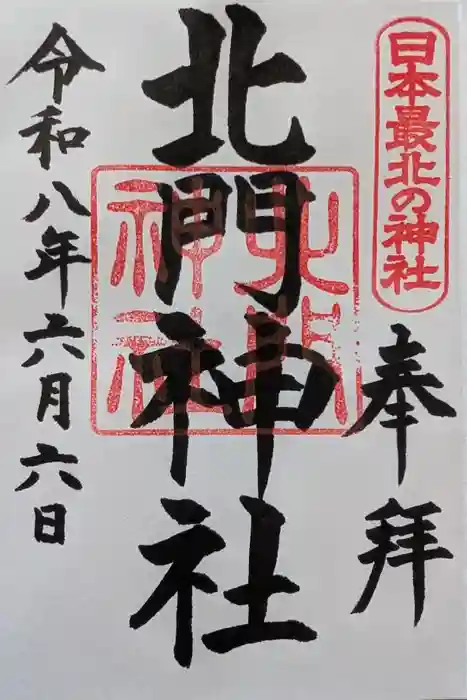 日本最北の神社
奉拝
北門神社
北門神社
令和八年六月六日